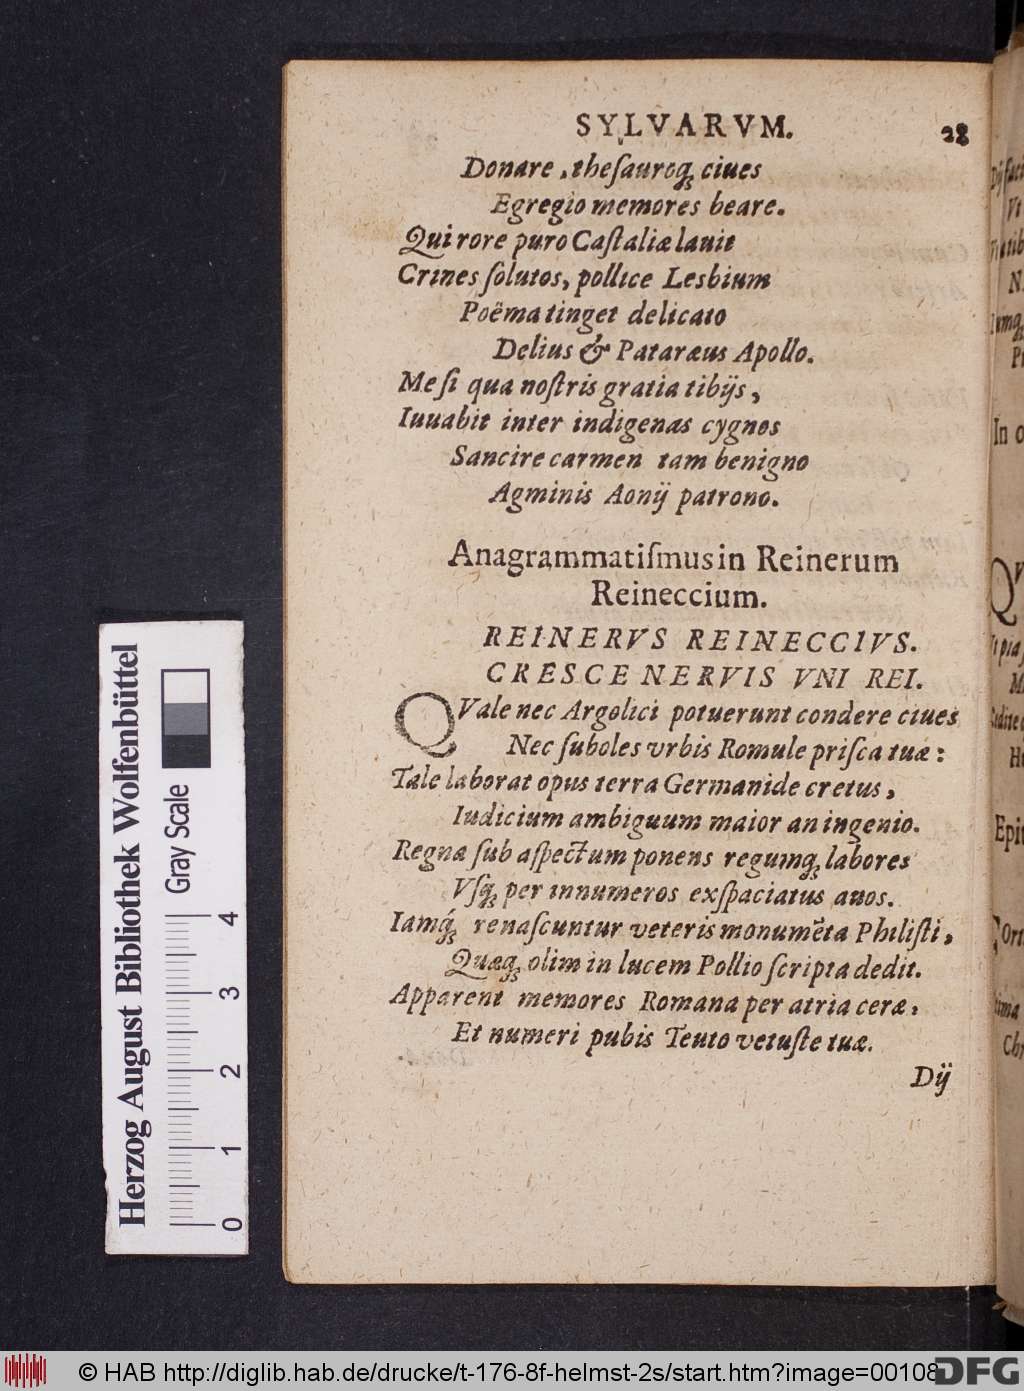 SYLVARVM. 28
Donare, theſauroq́ꝫ ciues
Egregio memores beare.
Qui rore puro Caſtaliæ lauit
Crines ſolutos, pollice Lesbium
Poëma tinget delicato
Delius & Pataræus Apollo.
Me ſi qua noſtris gratia tibijs,
Iuuabit inter indigenas cygnos
Sancire carmen tam benigno
Agminis Aonij patrono.
Anagrammatiſmus in Reinerum
Reineccium.
REINERVS REINECCIVS.
CRESCE NERVIS VNI REI.
QVale nec Argolici potuerunt condere ciues
Nec ſuboles vrbis Romule priſca tuæ:
Tale laborat opus terra Germanide cretus,
Iudicium ambiguum maior an ingenio.
Regna ſub aſpectum ponens regumqꝫ labores
Vſqꝫ per innumeros exſpaciatus auos.
Iamq́ꝫ renaſcuntur veteris monumẽta Philiſti,
Quæqꝫ olim in lucem Pollio ſcripta dedit.
Apparent memores Romana per atria ceræ,
Et numeri pubis Teuto vetuſte tuæ.
Dij
Herzog August Bibliothek Wolfenbüttel
Gray Scale
0 1 2 3 4
© HAB http://diglib.hab.de/drucke/t-176-8f-helmst-2s/start.htm?image=00108
DFG